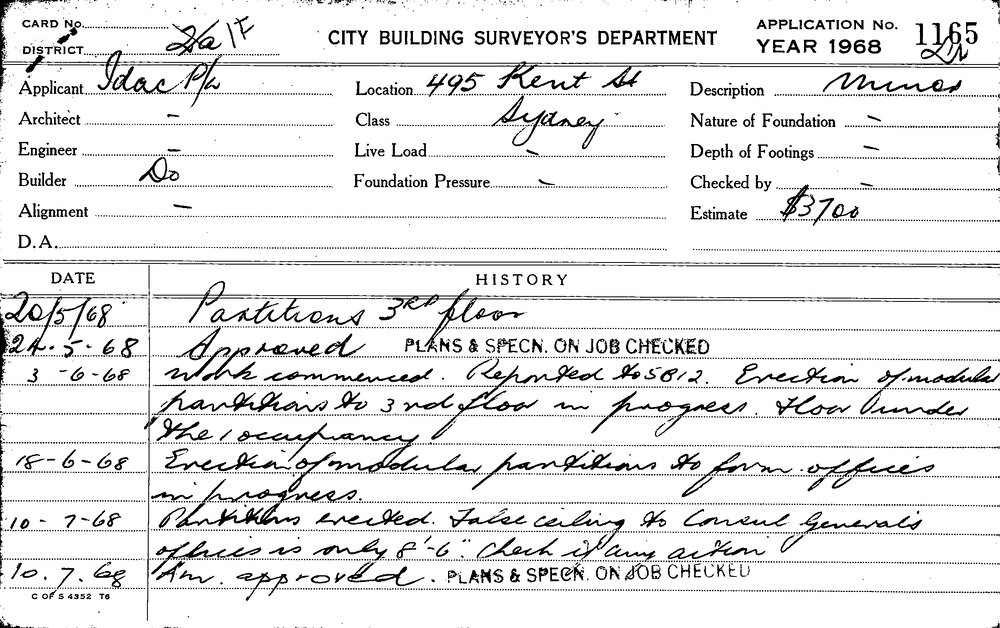 CARD No.
DISTRICT
CITY BUILDING SURVEYOR'S DEPARTMENT
APPLICATION No. 1165
YEAR 1968
Applicant Idac P/L
Location 495 Kent St
Description Minor
Architect –
Class Sydney
Nature of Foundation –
Engineer –
Live Load –
Depth of Footings –
Builder Do
Foundation Pressure –
Checked by –
Alignment –
Estimate $3700
D.A.
DATE HISTORY
20/5/68 Partitions 3RD floor
24-5-68 Approved PLANS & SPECN. ON JOB CHECKED
3-6-68 Work commenced. Reported to SB12. Erection of modular
partitions to 3rd floor in progress. Floor under
the 1 occupancy
18-6-68 Erection of modular partitions to form offices
in progress.
10-7-68 Partitions erected. False ceiling to Consul Generals
offices is only 8'-6". Check if any action
10.7.68 Am. approved. PLANS & SPECN. ON JOB CHECKED
C OF S 4352 T6